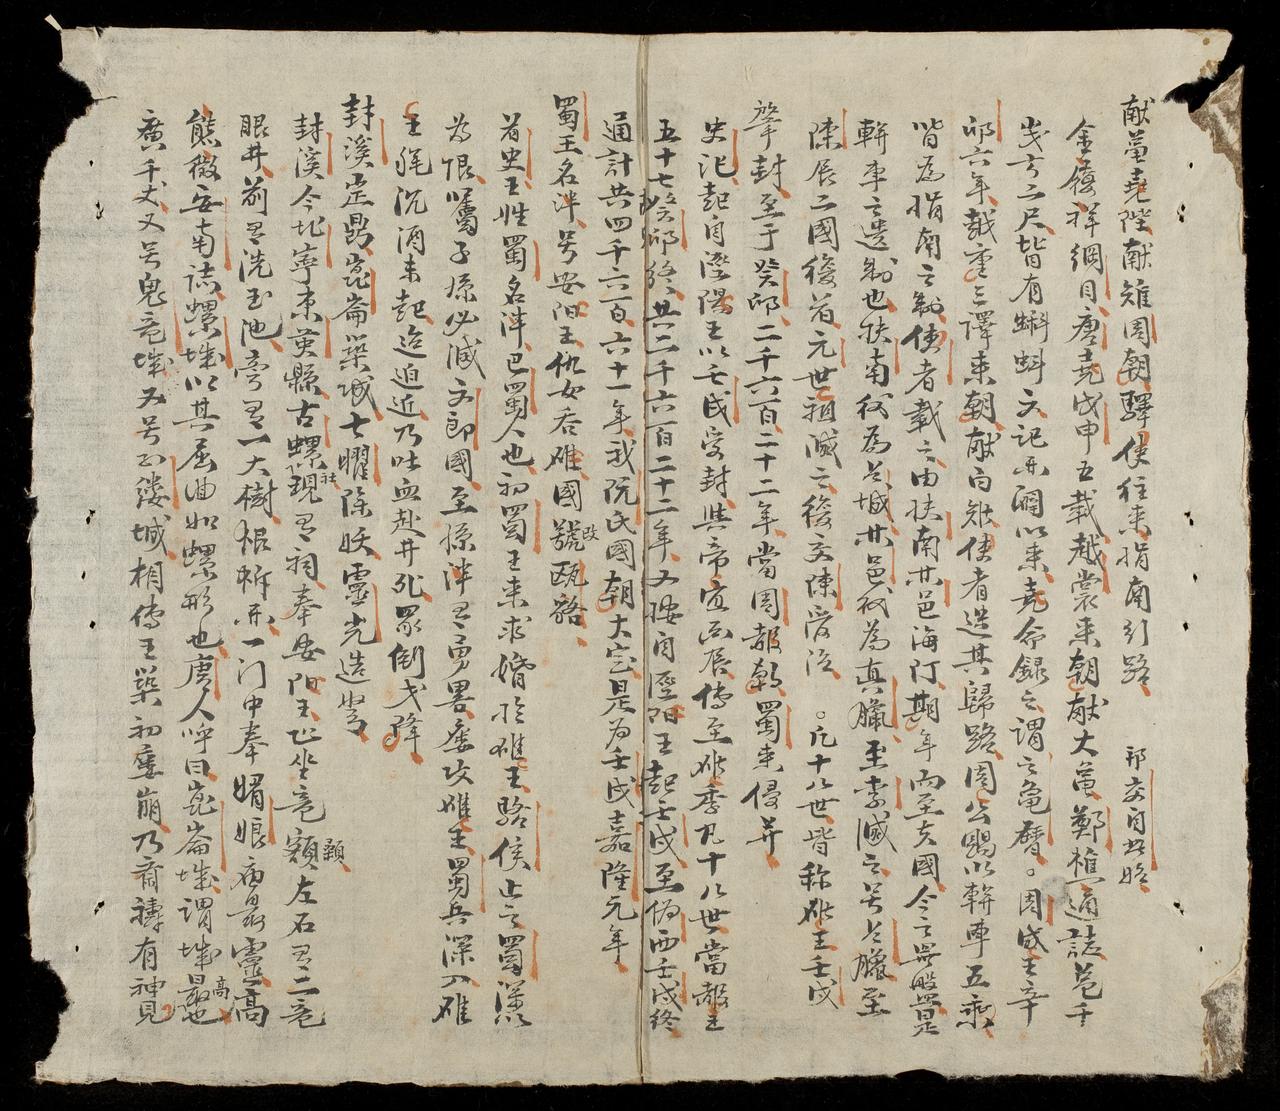 献蓂堯陛献雉周朝驛使往来指南引路 邦交自此始
金履祥綱目唐堯戊申五載越裳来朝献大亀鄭樵通誌葢千
歳方三尺皆有蝌蚪文記開闢以来堯命録之謂之亀暦。周成王辛
卯六年越重三譯来朝献白雉使者迷其歸路周公賜以軿車五乘
皆為指南之制使者載之由扶南林邑海际期年而至其國今之羅盤是
軿車之遺制也扶南後為占城林邑後為真臘至李滅之号占臘至
陳辰二國後省元世祖滅之後交陳受治 。凡十八世皆称雄王壬戌
肇封至于癸卯二千六百二十二年當周赧朝蜀来侵并
史記起自涇陽王以壬戌受封其帝宜丙辰傳至雄季凡十八世當赧王
五十七癸卯終共二千六百二十二年又按自涇阳王起壬戌至偽西壬戌終
通計共四千六百六十一年我阮氏國朝大定是为壬戌嘉隆元年
蜀王名泮号安阳王仇女吞雄國改號甌貉
省史王姓蜀名泮巴蜀人也初蜀王来求婚於雄王貉侯止之蜀深以
为恨囑子孫必滅文郎國至孫泮有勇畧屡攻雄王蜀兵深入雄
王猶沉酒未起迨迫近乃吐血赴井死眾倒戈降
封溪定鼎崑崙築城七曜除妖靈光造弩
封溪今北寧東英縣古螺社現有祠奉安阳王正坐竜額左右有二竜
眼井前有洗玉池旁有一大樹根拆開一门中奉媚娘庙最靈高
熊徵安南誌螺城以其屈曲如螺形也唐人呼曰崑崙城謂城最高也
廣千丈又号鬼竜城又号可縷城相傳王築初屡崩乃齋禱有神見